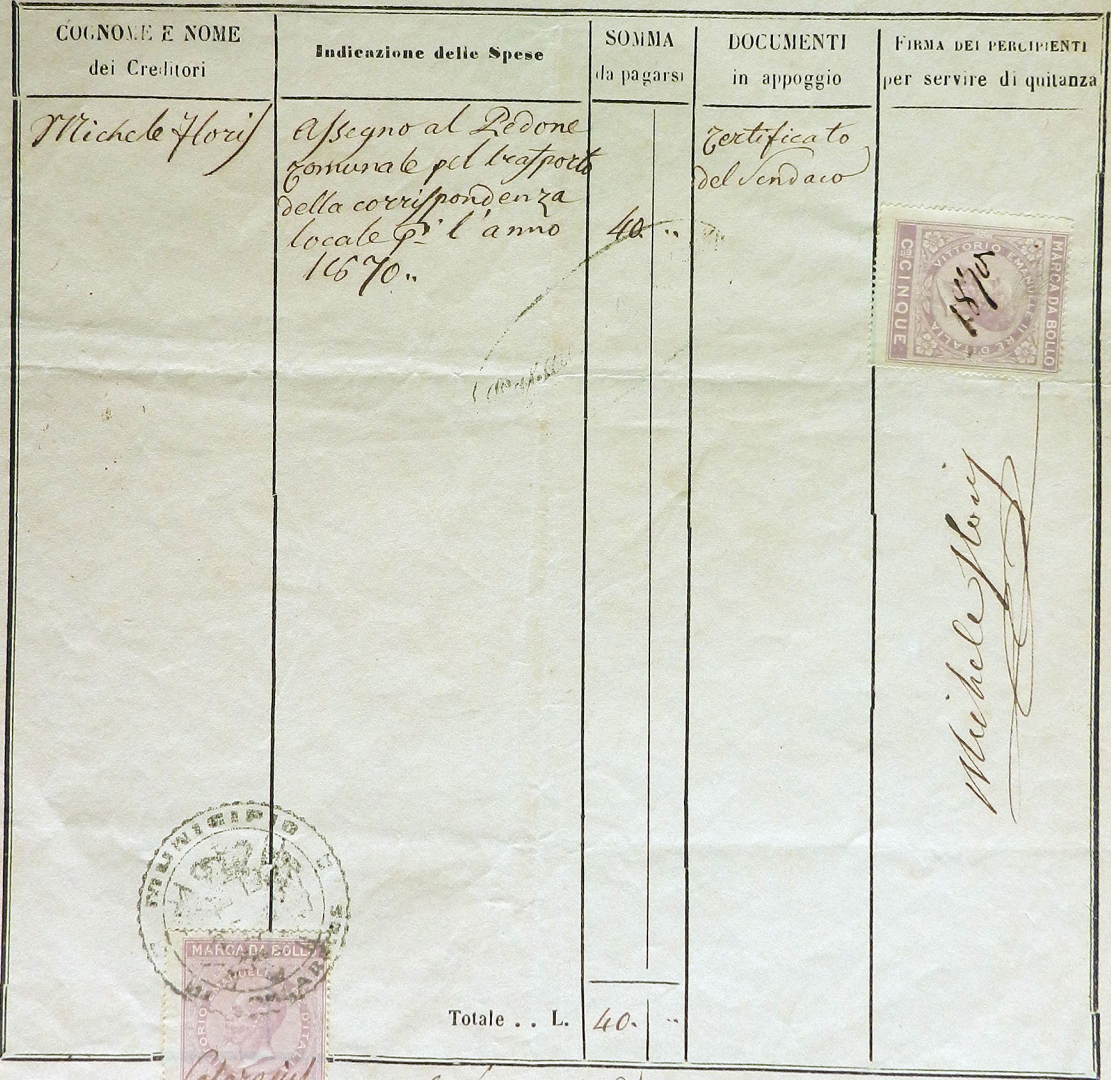 COGNOME E NOME
dei Creditori
Indicazione delle Spese
SOMMA
da pagarsi
DOCUMENTI
in appoggio
FIRMA DEI PERCIPIENTI
per servire di quitanza
Michele Floris
Assegno al Pedone
comunale pel trasporto
della corrispondenza
locale pr l'anno
1870..
40. ..
Certificato
del Sindaco
MARCA DA BOLLO
VITTORIO EMANUELE II RE D'ITALIA
Cmi CINQUE
1870
Michele Floris
MUNICIPIO
MARCA DA BOLL
Totale .. L.
40. ..